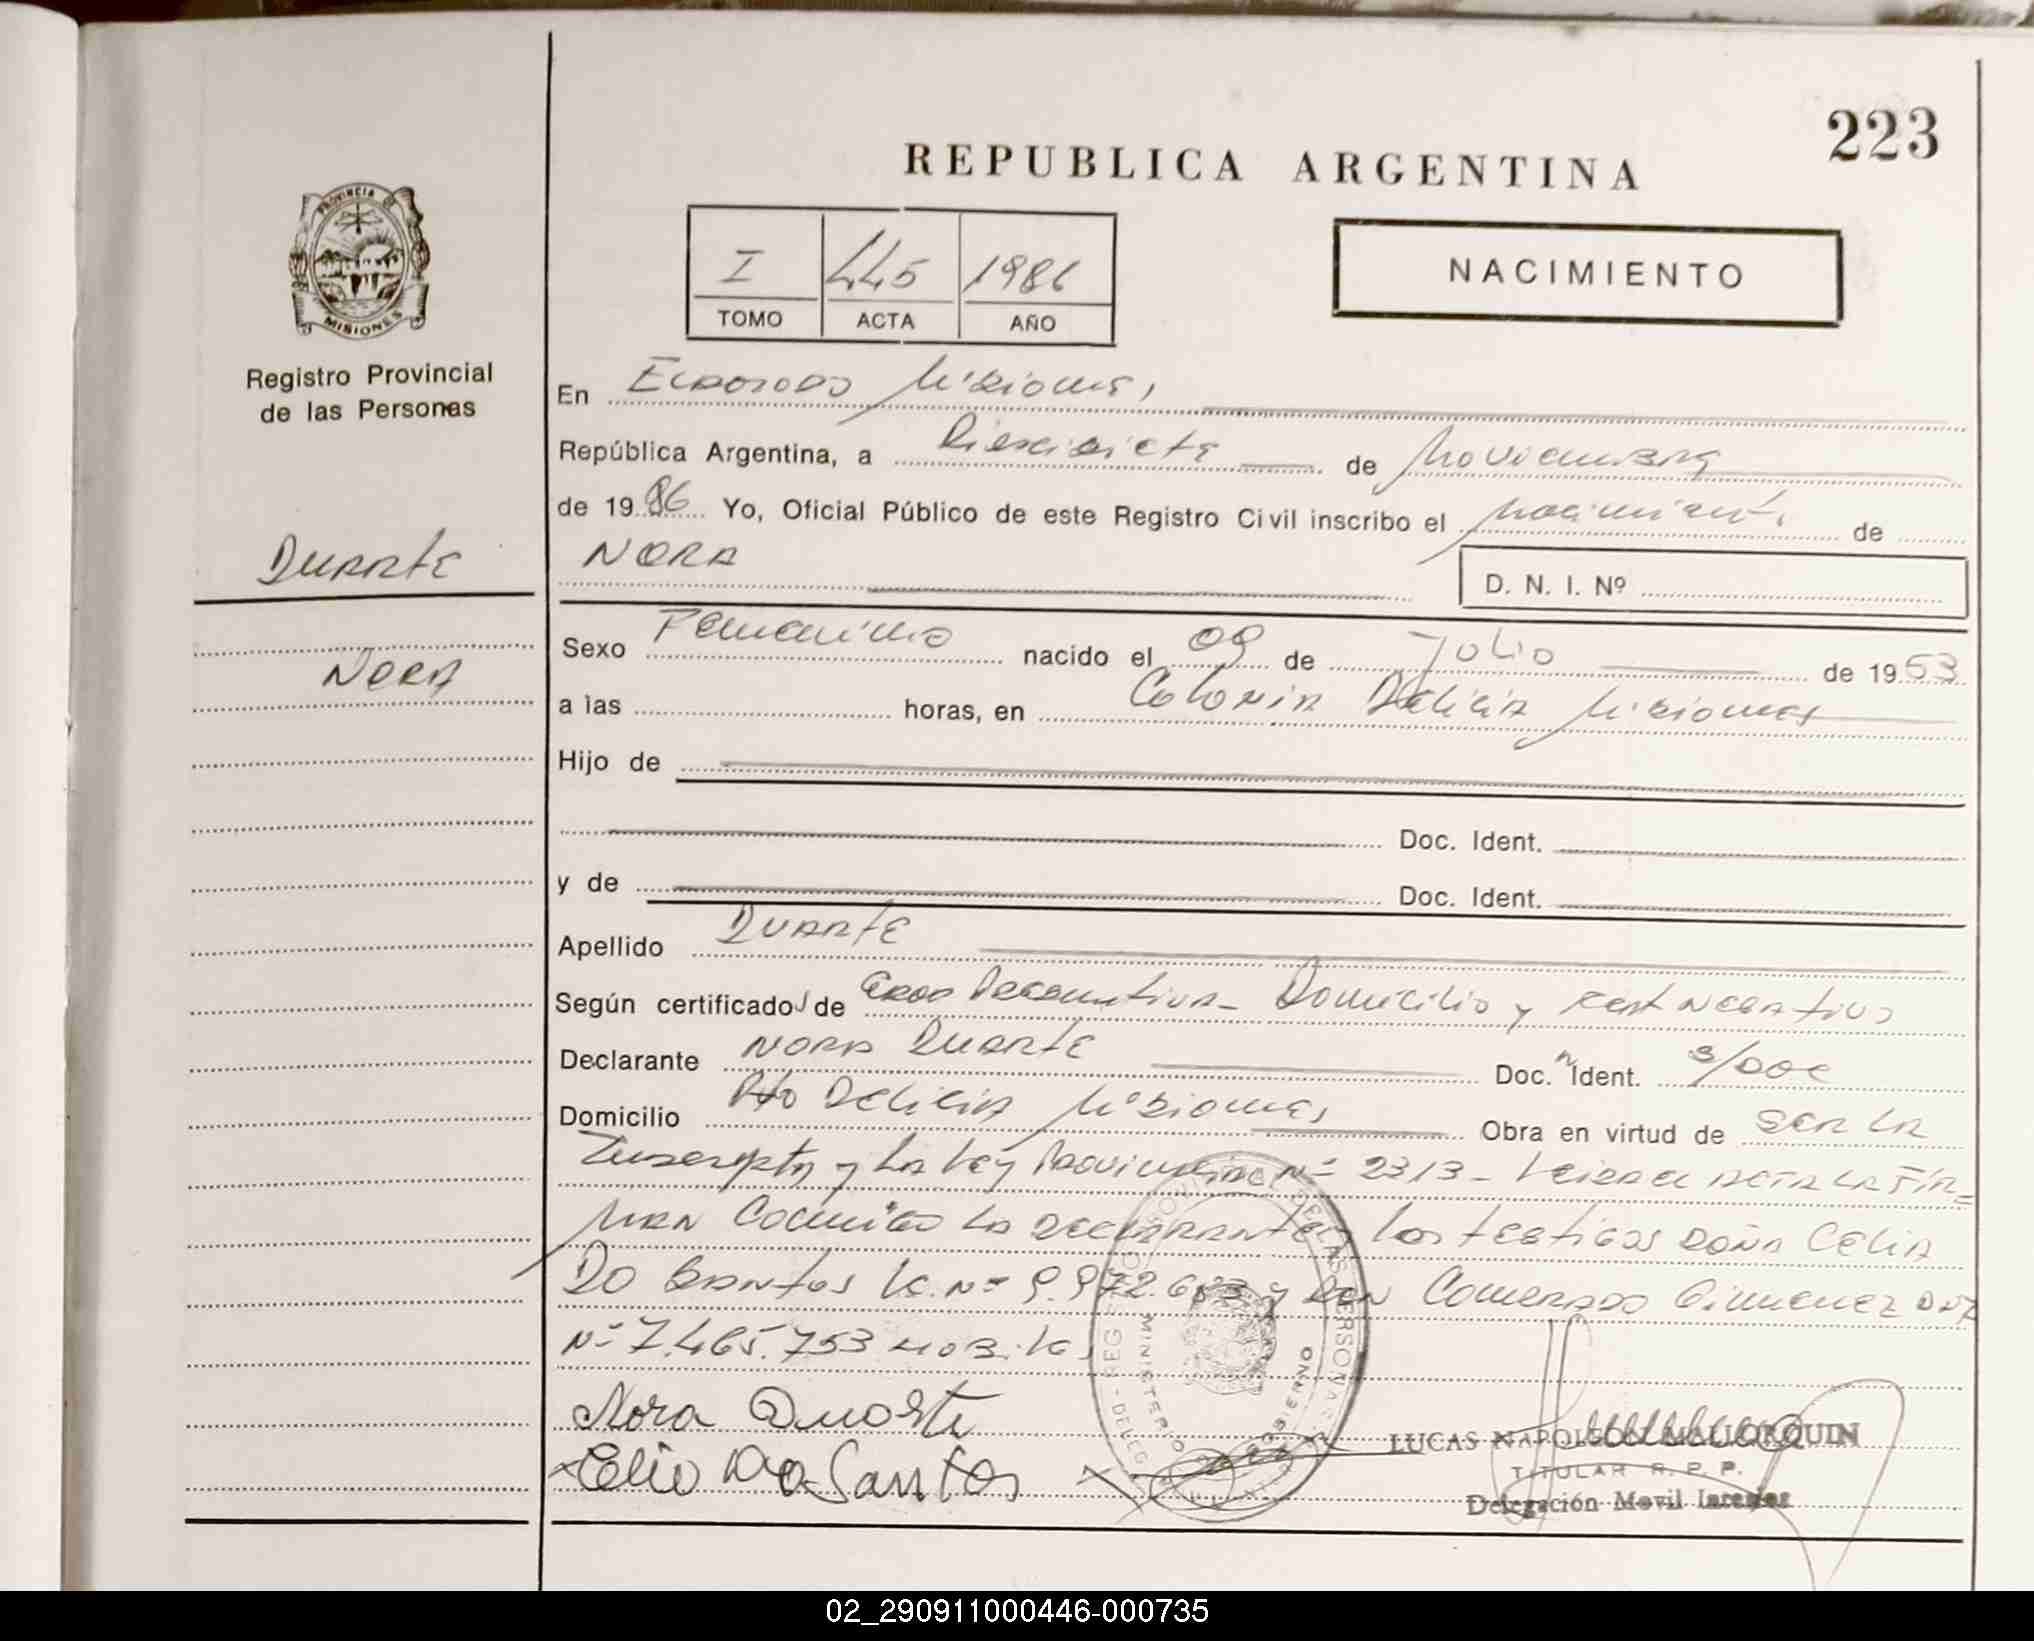 223
REPUBLICA ARGENTINA
PROVINCIA DE
MISIONES
Registro Provincial
de las Personas
I 445 1986
TOMO ACTA AÑO
NACIMIENTO
En Eldorado Misiones,
República Argentina, a Diecisiete de Noviembre
de 1986 Yo, Oficial Público de este Registro Civil inscribo el nacimiento de
Duarte
NORA
D. N. I. Nº
Nora
Sexo Femenino nacido el 09 de Julio de 1963
a las horas, en Colonia Delicia Misiones
Hijo de
Doc. Ident.
y de Doc. Ident.
Apellido Duarte
Según certificado de Edad Presuntiva - Domicilio y Test Negativo
Declarante Nora Duarte Doc. Ident. s/Doc
Domicilio Pto Delicia Misiones Obra en virtud de Ser la
Inscripta y la Ley Provincial Nº 2313 - Leida el acta la fir=
man conmigo la declarante y los testigos Doña Celia
Do Santos lc. Nº 9.972.683 y Don Comerado Gimenez DNI
Nº 7.465.753
Nora Duarte
Do Santos
MINISTERIO GOBIERNO
LUCAS NAPOLEON MALLORQUIN
TITULAR R. P. P.
Delegación Movil
02_290911000446-000735